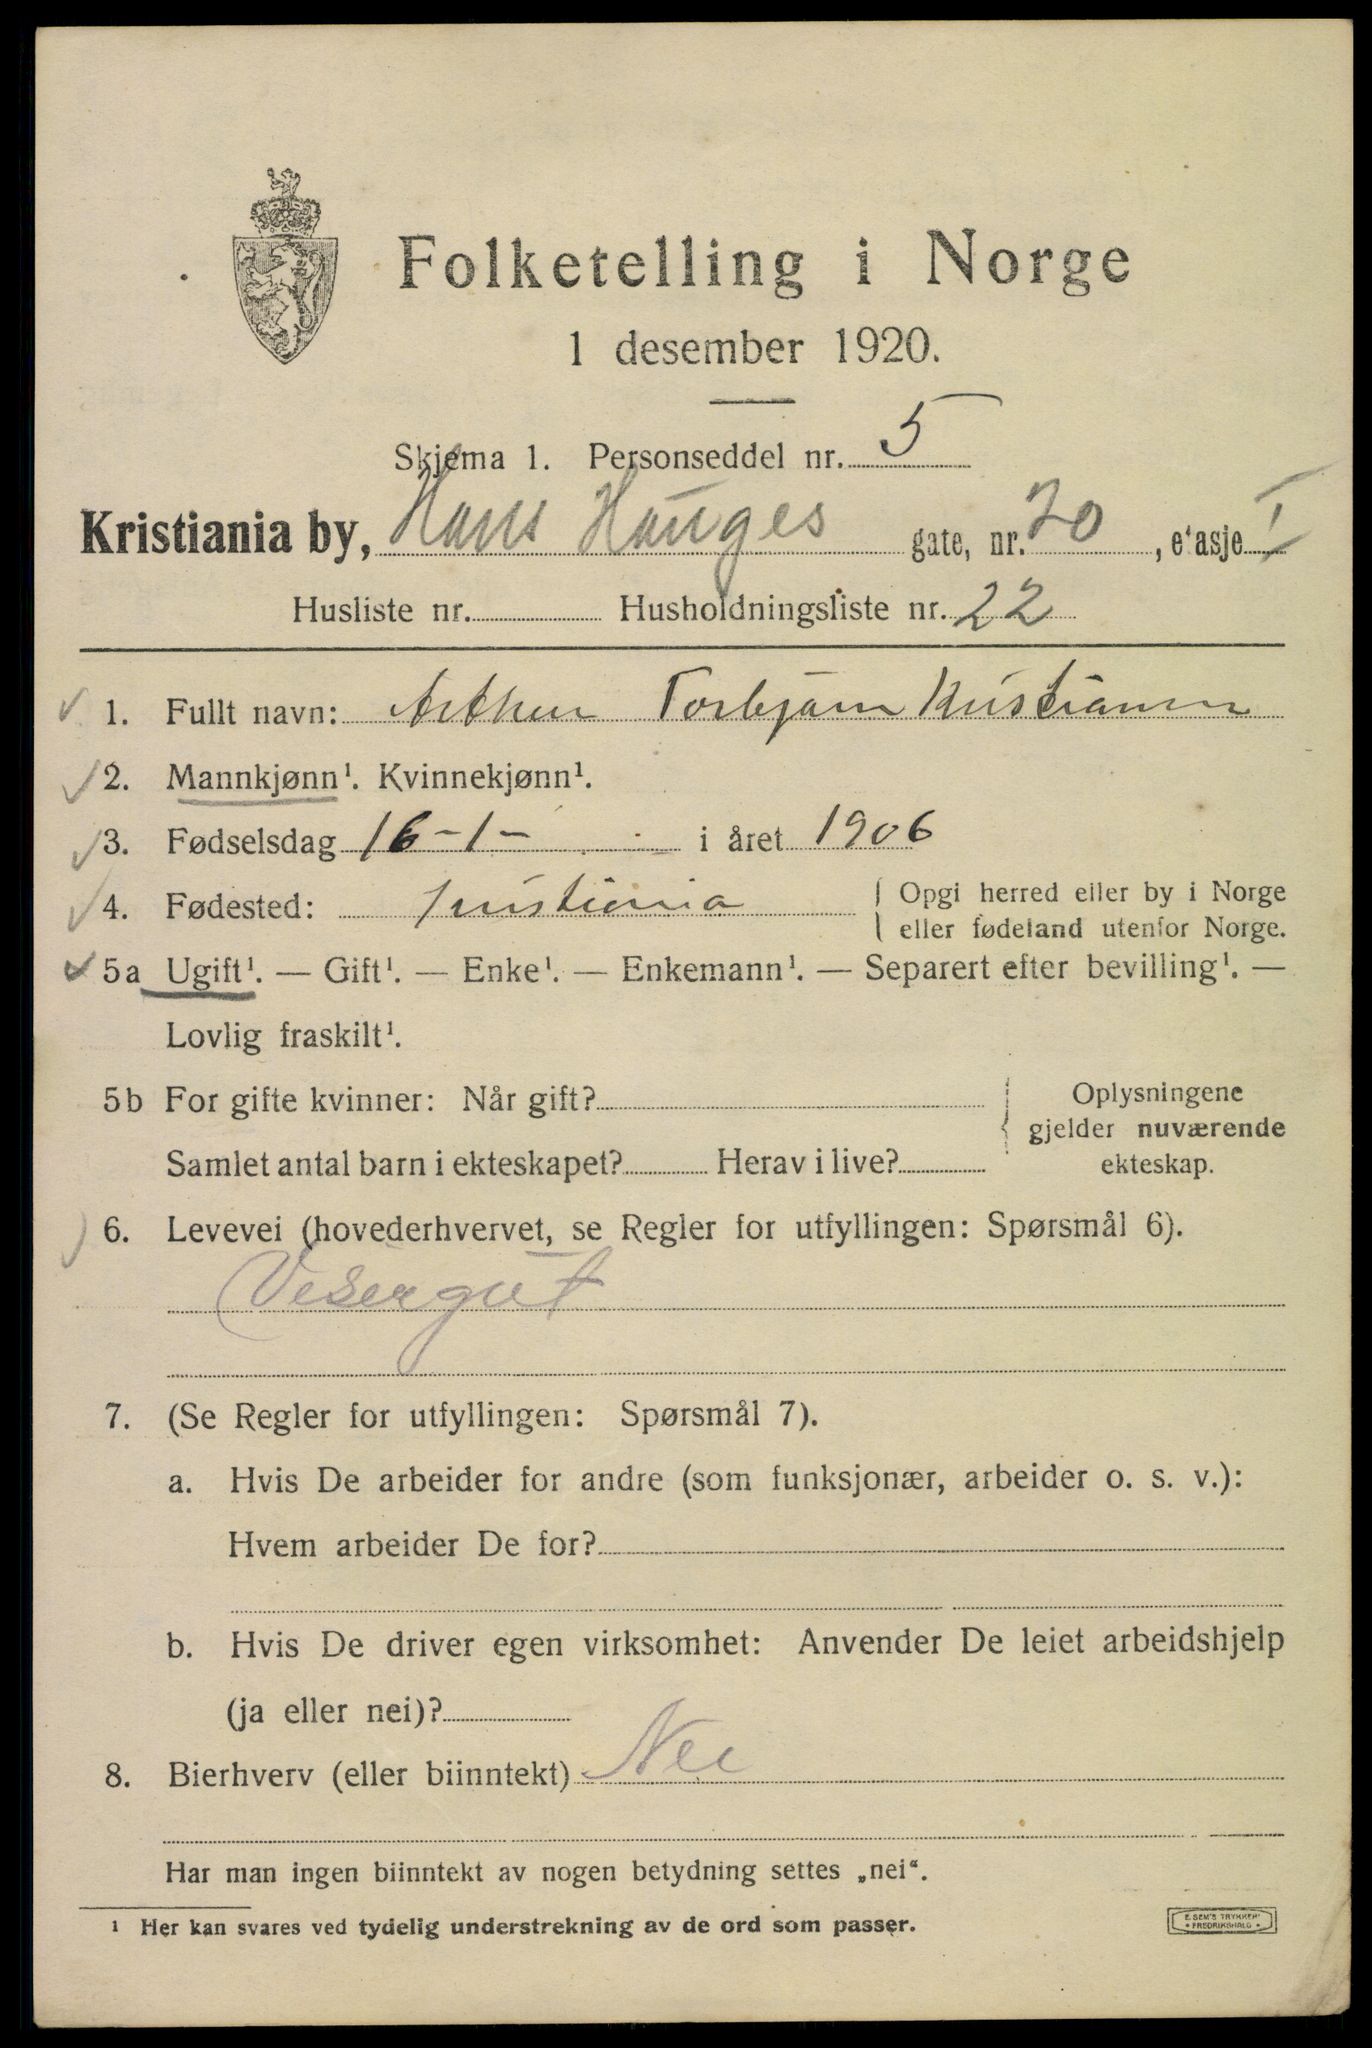 Folketelling i Norge
1 desember 1920.
Skjema 1. Personseddel nr. 5
Kristiania by, Hans Hauges gate, nr. 70, etasje I
Husliste nr. Husholdningsliste nr. 22
1. Fullt navn: Arthur Torbjørn Kristiansen
2. Mannkjønn¹. Kvinnekjønn¹.
3. Fødselsdag 16-1- i året 1906
4. Fødested: Kristiania { Opgi herred eller by i Norge
eller fødeland utenfor Norge.
5a Ugift¹. — Gift¹. — Enke¹. — Enkemann¹. — Separert efter bevilling¹. —
Lovlig fraskilt¹.
5b For gifte kvinner: Når gift? { Oplysningene
gjelder nuværende
Samlet antal barn i ekteskapet? Herav i live? ekteskap.
6. Levevei (hovederhvervet, se Regler for utfyllingen: Spørsmål 6).
Visergut
7. (Se Regler for utfyllingen: Spørsmål 7).
a. Hvis De arbeider for andre (som funksjonær, arbeider o. s. v.):
Hvem arbeider De for?
b. Hvis De driver egen virksomhet: Anvender De leiet arbeidshjelp
(ja eller nei)?
8. Bierhverv (eller biinntekt) Nei
Har man ingen biinntekt av nogen betydning settes „nei“.
¹ Her kan svares ved tydelig understrekning av de ord som passer.
E. SEM'S TRYKKERI
• FREDRIKSHALD •